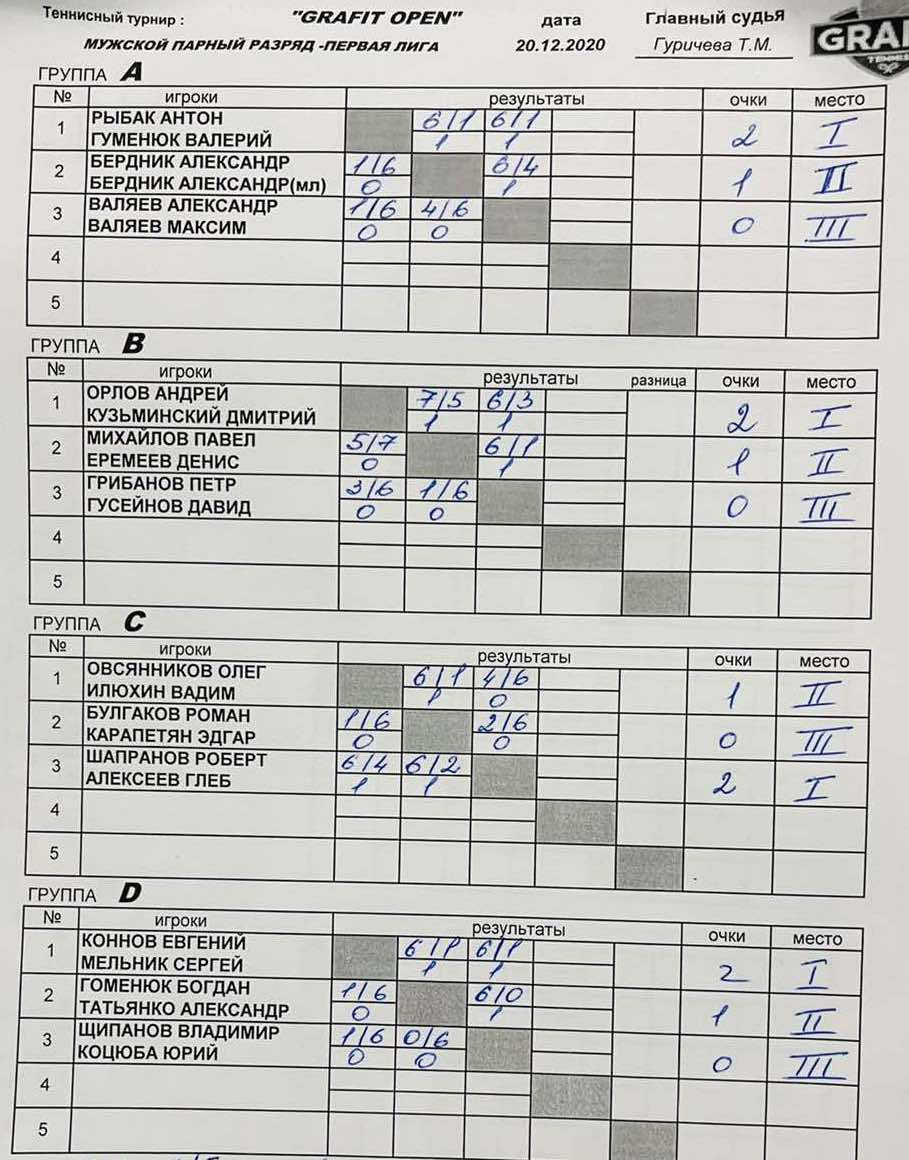 Теннисный турнир : "GRAFIT OPEN" дата Главный судья
МУЖСКОЙ ПАРНЫЙ РАЗРЯД -ПЕРВАЯ ЛИГА 20.12.2020 Гуричева Т.М.
GRA
ГРУППА A
№ игроки результаты очки место
1 РЫБАК АНТОН 6/1 6/1 2 I
ГУМЕНЮК ВАЛЕРИЙ 1 1
2 БЕРДНИК АЛЕКСАНДР 1/6 6/4 1 II
БЕРДНИК АЛЕКСАНДР(мл) 0 1
3 ВАЛЯЕВ АЛЕКСАНДР 1/6 4/6 0 III
ВАЛЯЕВ МАКСИМ 0 0
4
5
ГРУППА B
№ игроки результаты разница очки место
1 ОРЛОВ АНДРЕЙ 7/5 6/3 2 I
КУЗЬМИНСКИЙ ДМИТРИЙ 1 1
2 МИХАЙЛОВ ПАВЕЛ 5/7 6/1 1 II
ЕРЕМЕЕВ ДЕНИС 0 1
3 ГРИБАНОВ ПЕТР 3/6 1/6 0 III
ГУСЕЙНОВ ДАВИД 0 0
4
5
ГРУППА C
№ игроки результаты очки место
1 ОВСЯННИКОВ ОЛЕГ 6/1 4/6 1 II
ИЛЮХИН ВАДИМ 1 0
2 БУЛГАКОВ РОМАН 1/6 2/6 0 III
КАРАПЕТЯН ЭДГАР 0 0
3 ШАПРАНОВ РОБЕРТ 6/4 6/2 2 I
АЛЕКСЕЕВ ГЛЕБ 1 1
4
5
ГРУППА D
№ игроки результаты очки место
1 КОННОВ ЕВГЕНИЙ 6/1 6/1 2 I
МЕЛЬНИК СЕРГЕЙ 1 1
2 ГОМЕНЮК БОГДАН 1/6 6/0 1 II
ТАТЬЯНКО АЛЕКСАНДР 0 1
3 ЩИПАНОВ ВЛАДИМИР 1/6 0/6 0 III
КОЦЮБА ЮРИЙ 0 0
4
5